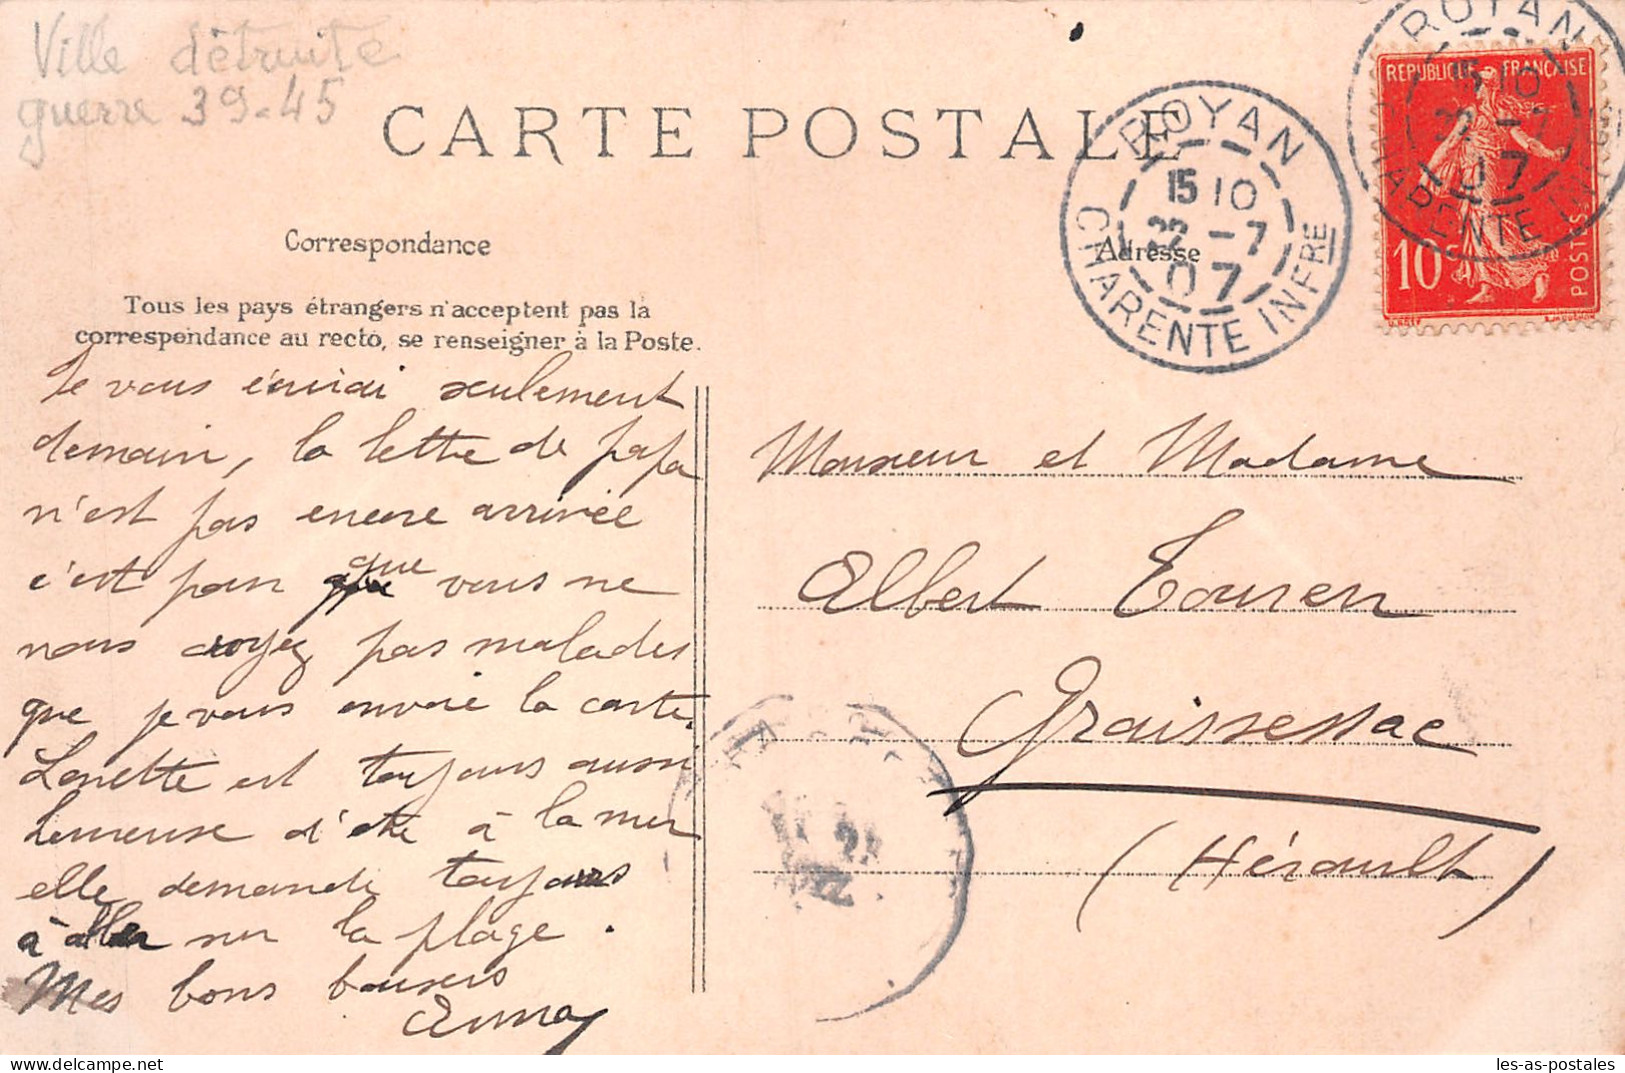 Ville détruite
guerre 39-45
CARTE POSTALE
Correspondance
Adresse
Tous les pays étrangers n'acceptent pas la
correspondance au recto, se renseigner à la Poste.
ROYAN
15 10
22 -7
07
CHARENTE INFRE
ROYAN
15 10
22 -7
07
CHARENTE IN
REPUBLIQUE FRANÇAISE
10c
POSTES
Je vous enviai seulement
demain, la lettre de papa
n'est pas encore arrivée
c'est pour que vous ne
nous croyez pas malades
que je vous envoie la carte.
Lonette est toujours aussi
heureuse d'être à la mer
elle demande toujours
à aller sur la plage.
Mes bons baisers
Anna
Monsieur et Madame
Albert Touren
Graissessac
(Hérault)
les-as-postales